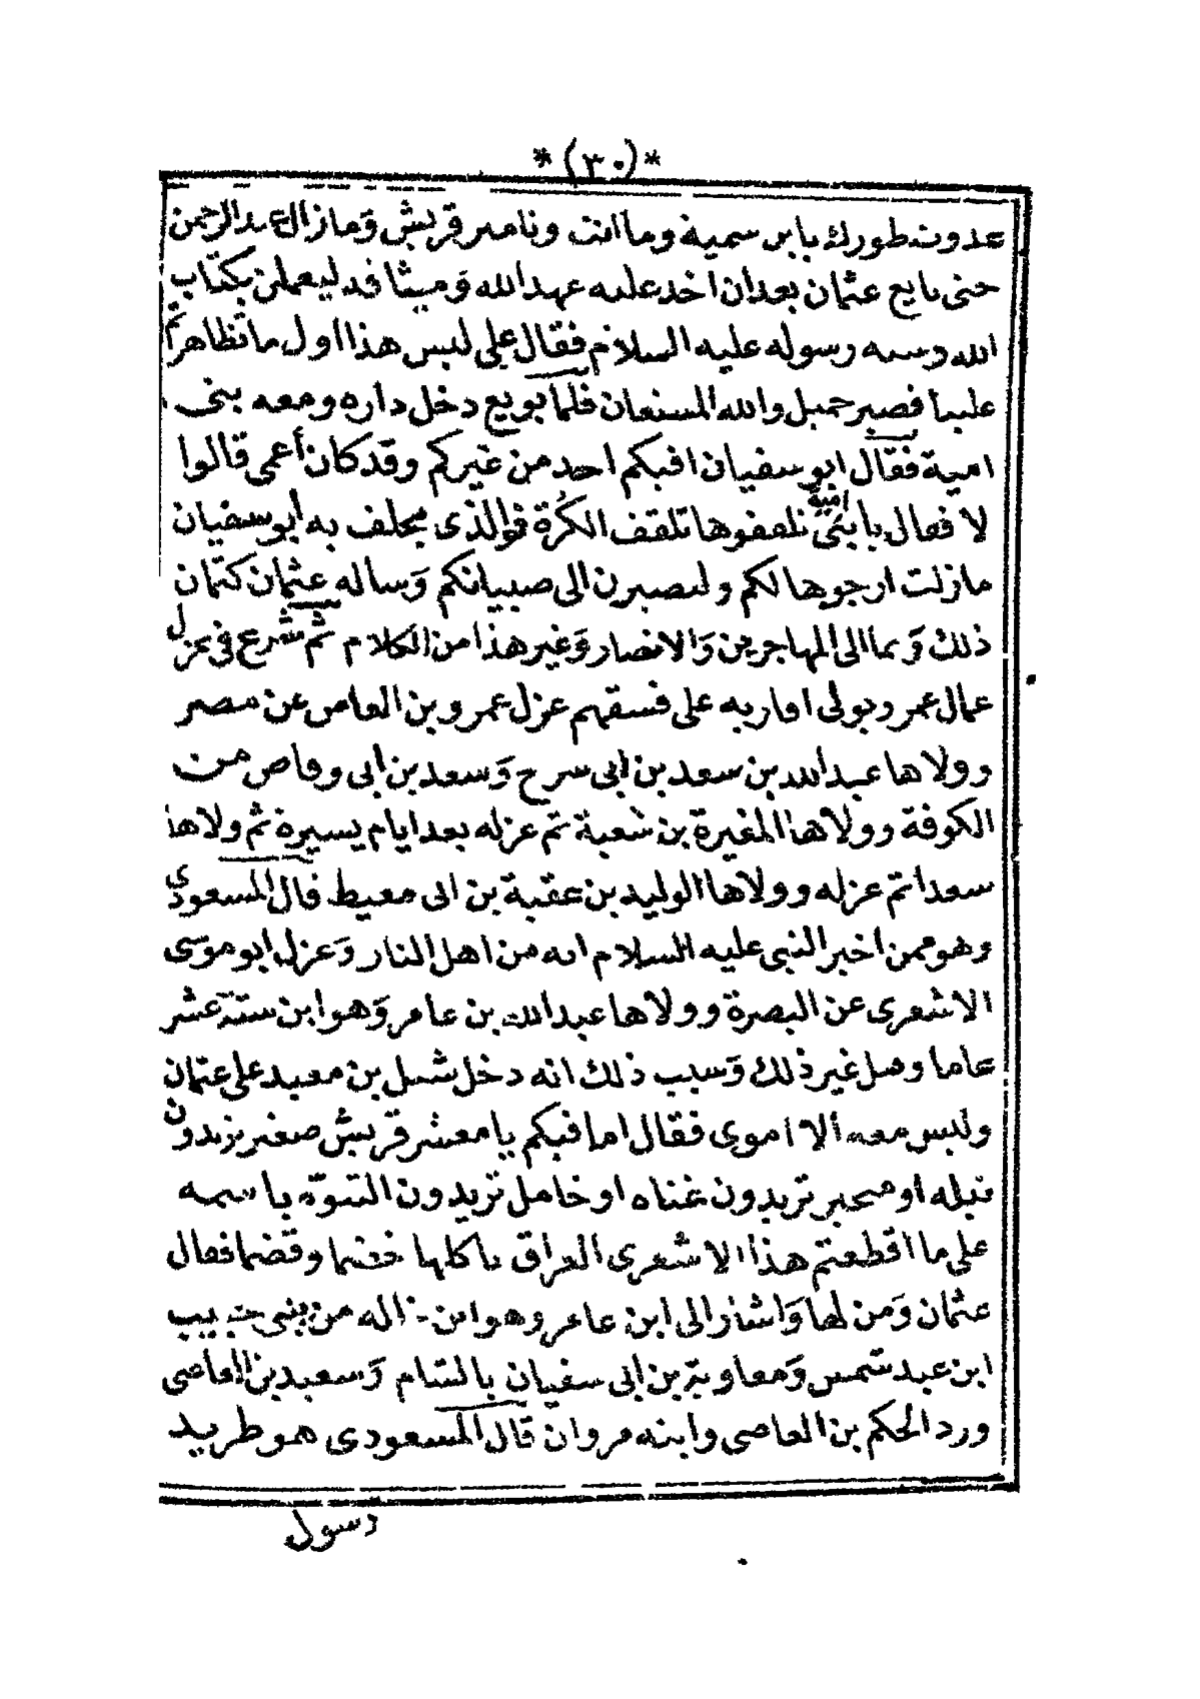 *(٣٠)*
عدوت طورك يابن سمية وما انت وتامير قريش وَمازال عبدالرحمن
حتى بايع عثمان بعد ان اخذ عليه عهد الله وَميثاقه ليعملن بكتاب
الله وسنه رسوله عليه السلام فقال علي ليس هذا اول ما تظاهرتم
علينا فصبر جميل والله المستعان فلما بويع دخل داره ومعه بنى
امية فقال ابو سفيان افيكم احد من غيركم وقد كان أعمى قالوا
لا فقال يا بنى امية تلقفوها تلقف الكُرة فوالذى يحلف به أبو سفيان
مازلت ارجوها لكم ولتصيرن الى صبيانكم وَساله عثمان كتمان
ذلك وَنما الى المهاجرين وَالانصار وَغير هذا من الكلام ثم شرع في عزل
عمال عمر وتولى اقاربه على فسقهم عزل عمرو بن العاص عن مصر
وولاها عبدالله بن سعد بن ابى سرح وَسعد بن ابى وقاص من
الكوفة وولاها المغيرة بن شعبة ثم عزله بعد ايام يسيرة ثم ولاها
سعدا ثم عزله وولاها الوليد بن عقبة بن ابى معيط قال المسعودي
وهو ممن اخبر النبى عليه السلام انه من اهل النار وَعزل ابو موسى
الاشعرى عن البصرة وولاها عبدالله بن عامر وَهو ابن ستة عشر
عاما وصل غير ذلك وَسبب ذلك انه دخل شبل بن معبد على عثمان
وليس معه ألا اموى فقال اما فيكم يا معشر قريش صغير يزيدون
نبله او محبر تريدون غناه او خامل تريدون التنوّه باسمه
على ما اقطعتم هذا الاشعرى العراق ياكلها خضما وقضما فقال
عثمان وَمن لها وَاشار الى ابن عامر وهو ابن خاله من بنى حبيب
ابن عبد شمس وَمعاوية بن ابى سفيان بالشام وَسعيد بن العاصى
ورد الحكم بن العاصى وابنه مروان قال المسعودى هو طريد
رسول